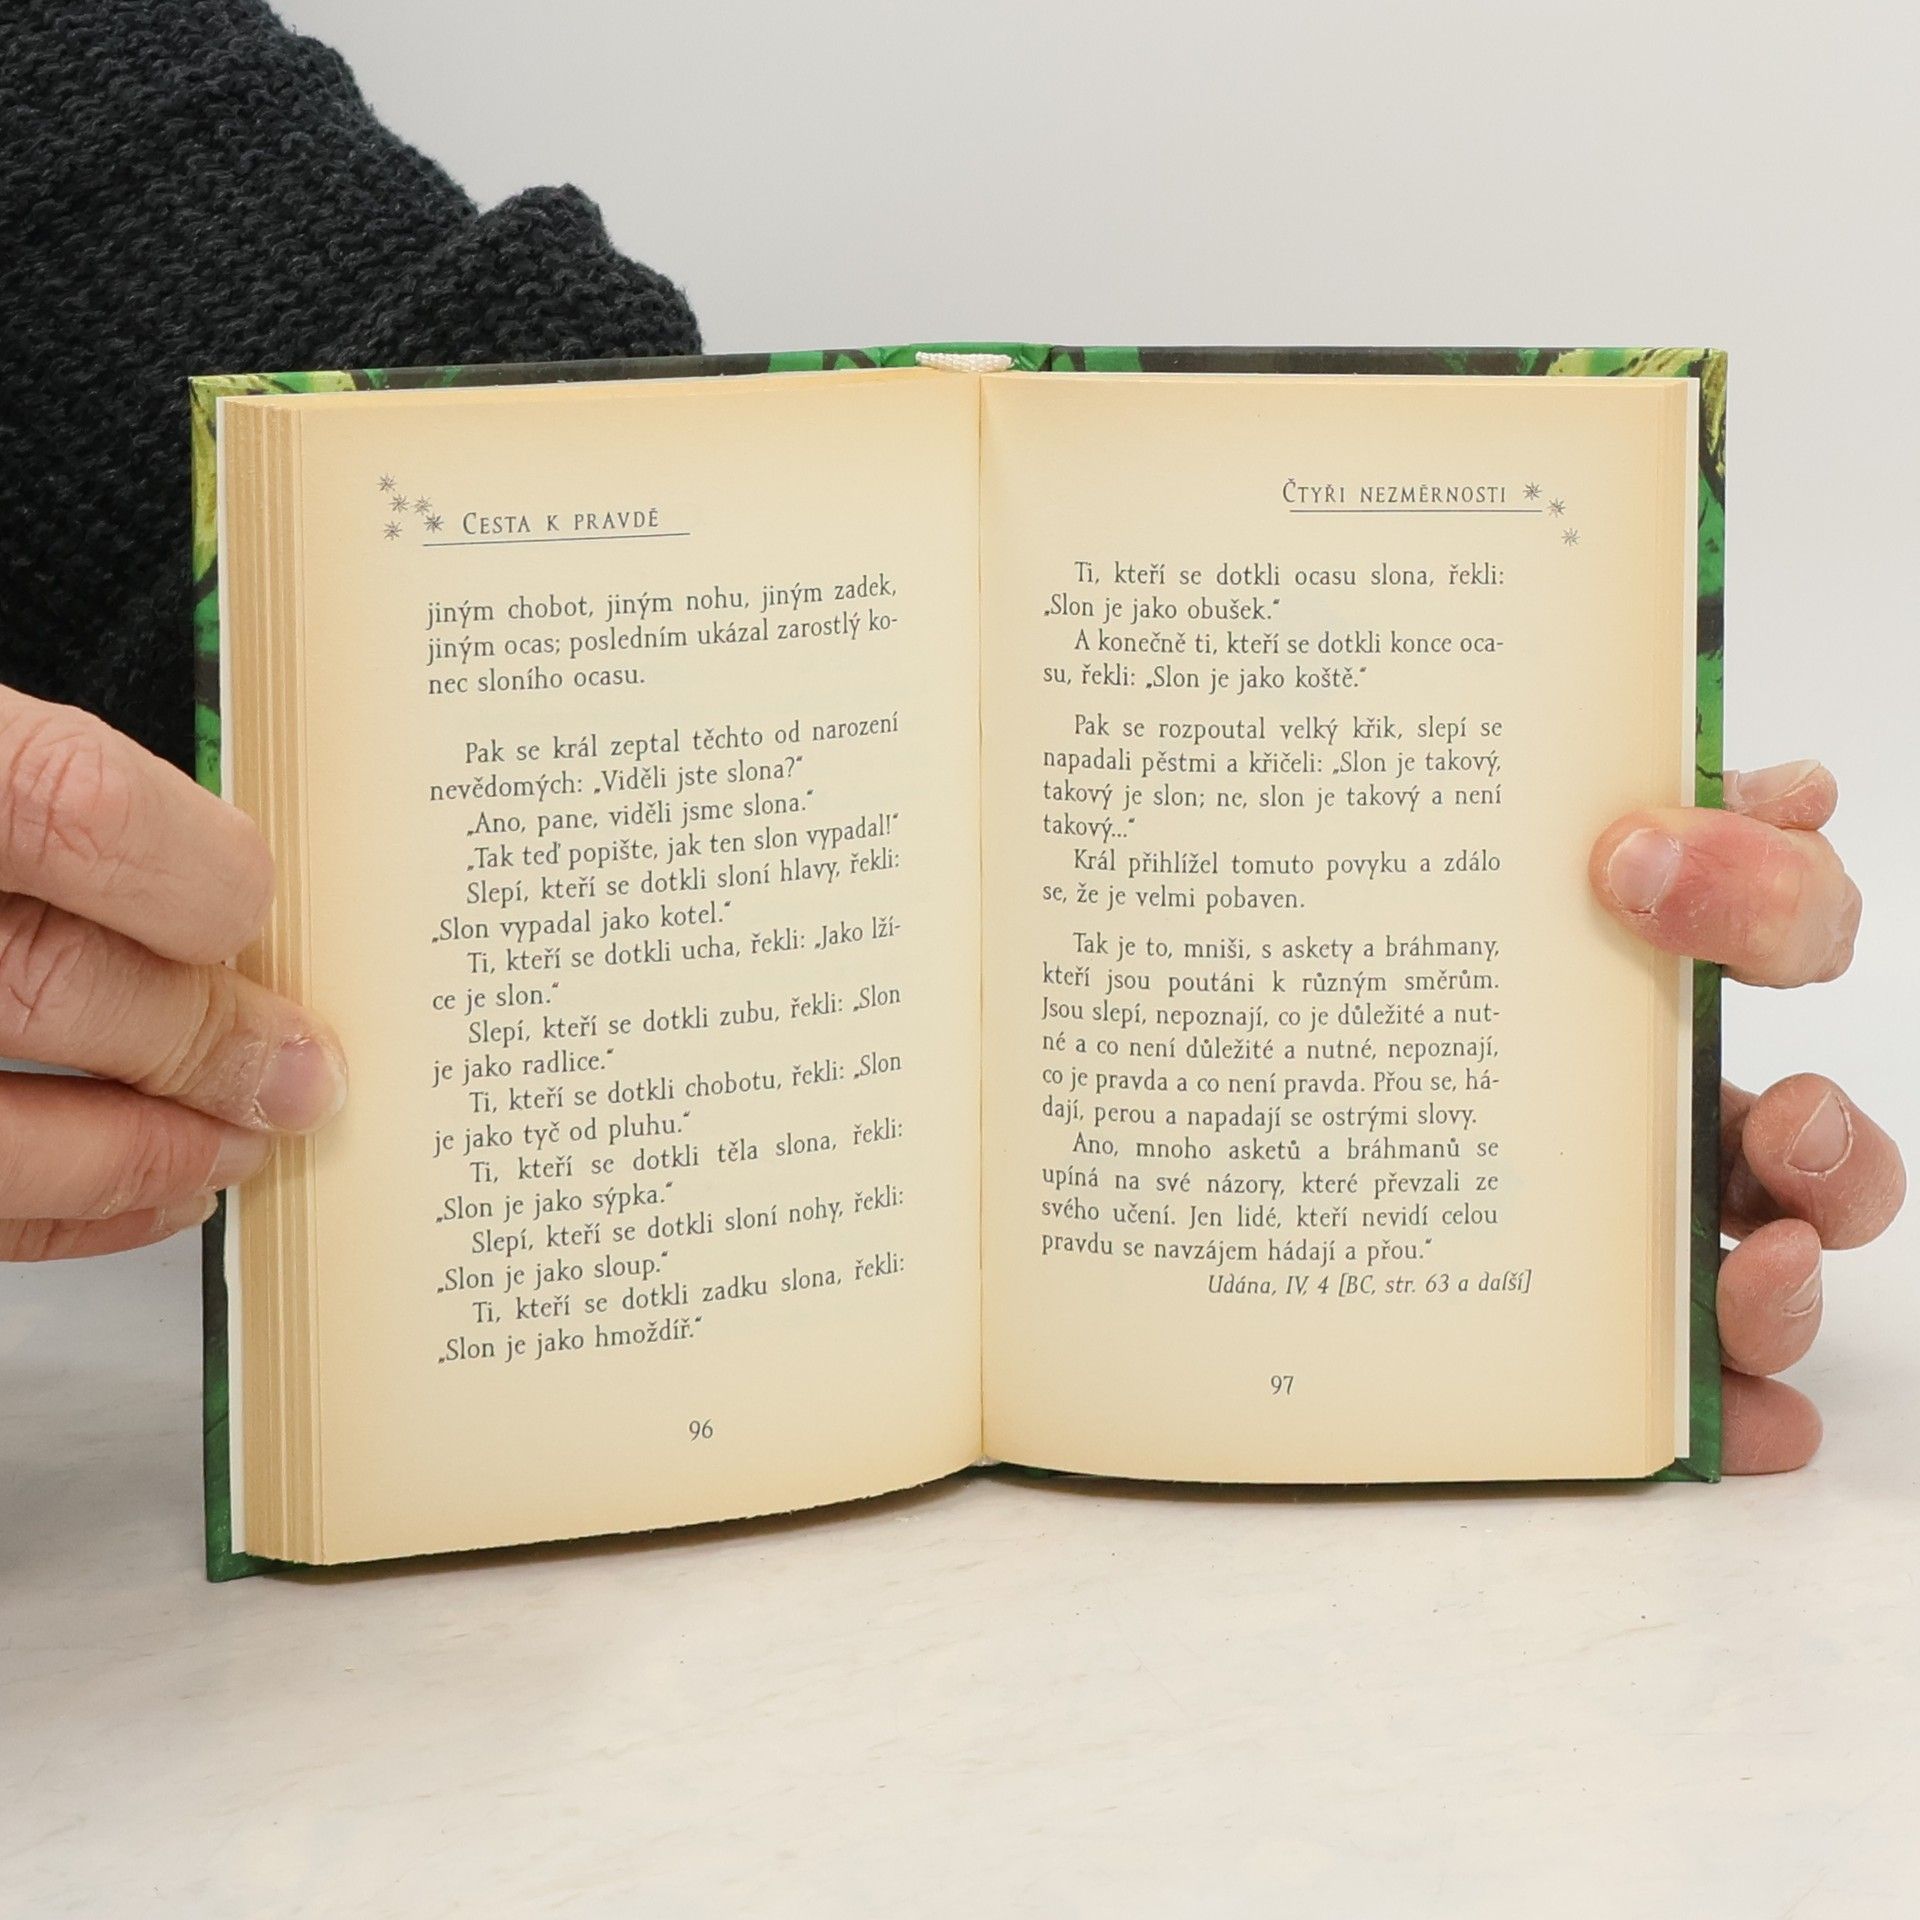 Cesta k pravdě
jiným chobot, jiným nohu, jiným zadek,
jiným ocas; posledním ukázal zarostlý ko-
nec sloního ocasu.
Pak se král zeptal těchto od narození
nevědomých: „Viděli jste slona?“
„Ano, pane, viděli jsme slona.“
„Tak teď popište, jak ten slon vypadal!“
Slepí, kteří se dotkli sloní hlavy, řekli:
„Slon vypadal jako kotel.“
Ti, kteří se dotkli ucha, řekli: „Jako lží-
ce je slon.“
Slepí, kteří se dotkli zubu, řekli: „Slon
je jako radlice.“
Ti, kteří se dotkli chobotu, řekli: „Slon
je jako tyč od pluhu.“
Ti, kteří se dotkli těla slona, řekli:
„Slon je jako sýpka.“
Slepí, kteří se dotkli sloní nohy, řekli:
„Slon je jako sloup.“
Ti, kteří se dotkli zadku slona, řekli:
„Slon je jako hmoždíř.“
96
Čtyři nezměrnosti
Ti, kteří se dotkli ocasu slona, řekli:
„Slon je jako obušek.“
A konečně ti, kteří se dotkli konce oca-
su, řekli: „Slon je jako koště.“
Pak se rozpoutal velký křik, slepí se
napadali pěstmi a křičeli: „Slon je takový,
takový je slon; ne, slon je takový a není
takový...“
Král přihlížel tomuto povyku a zdálo
se, že je velmi pobaven.
Tak je to, mniši, s askety a bráhmany,
kteří jsou poutáni k různým směrům.
Jsou slepí, nepoznají, co je důležité a nut-
né a co není důležité a nutné, nepoznají,
co je pravda a co není pravda. Přou se, há-
dají, perou a napadají se ostrými slovy.
Ano, mnoho asketů a bráhmanů se
upíná na své názory, které převzali ze
svého učení. Jen lidé, kteří nevidí celou
pravdu se navzájem hádají a přou.“
Udána, IV, 4 [BC, str. 63 a další]
97